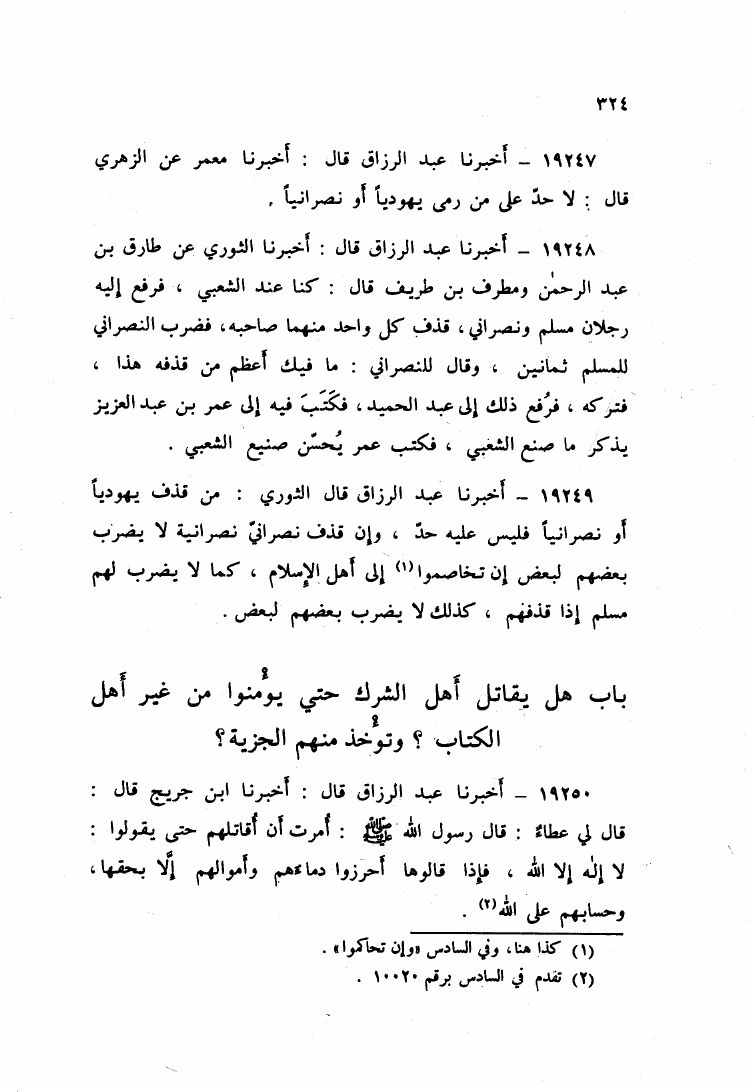 ٣٢٤
١٩٢٤٧ – أخبرنا عبد الرزاق قال : أخبرنا معمر عن الزهري
قال : لا حدّ على من رمى يهودياً أو نصرانياً .
١٩٢٤٨ – أخبرنا عبد الرزاق قال : أخبرنا الثوري عن طارق بن
عبد الرحمٰن ومطرف بن طريف قال : كنا عند الشعبي ، فرفع إليه
رجلان مسلم ونصراني ، قذف كل واحد منهما صاحبه، فضرب النصراني
للمسلم ثمانين ، وقال للنصراني : ما فيك أعظم من قذفه هذا ،
فتركه ، فرُفع ذلك إلى عبد الحميد ، فكَتَبَ فيه إلى عمر بن عبد العزيز
يذكر ما صنع الشعبي ، فكتب عمر يُحسّن صنيع الشعبي .
١٩٢٤٩ – أخبرنا عبد الرزاق قال الثوري : من قذف يهودياً
أو نصرانياً فليس عليه حدّ ، وإن قذف نصرانيّ نصرانية لا يضرب
بعضهم لبعض إن تخاصموا(١) إلى أهل الإسلام ، كما لا يضرب لهم
مسلم إذا قذفهم ، كذلك لا يضرب بعضهم لبعض .
باب هل يقاتل أهل الشرك حتي يؤمنوا من غير أهل
الكتاب ؟ وتؤخذ منهم الجزية؟
١٩٢٥٠ – أخبرنا عبد الرزاق قال : أخبرنا ابن جريج قال :
قال لي عطاءٌ : قال رسول الله ﷺ : أُمرت أن أُقاتلهم حتى يقولوا :
لا إلٰه إلا الله ، فإذا قالوها أحرزوا دماءهم وأموالهم إلَّا بحقها،
وحسابهم على الله(٢) .
(١) كذا هنا، وفي السادس «وإن تحاكموا» .
(٢) تقدم في السادس برقم ١٠٠٢٠ .